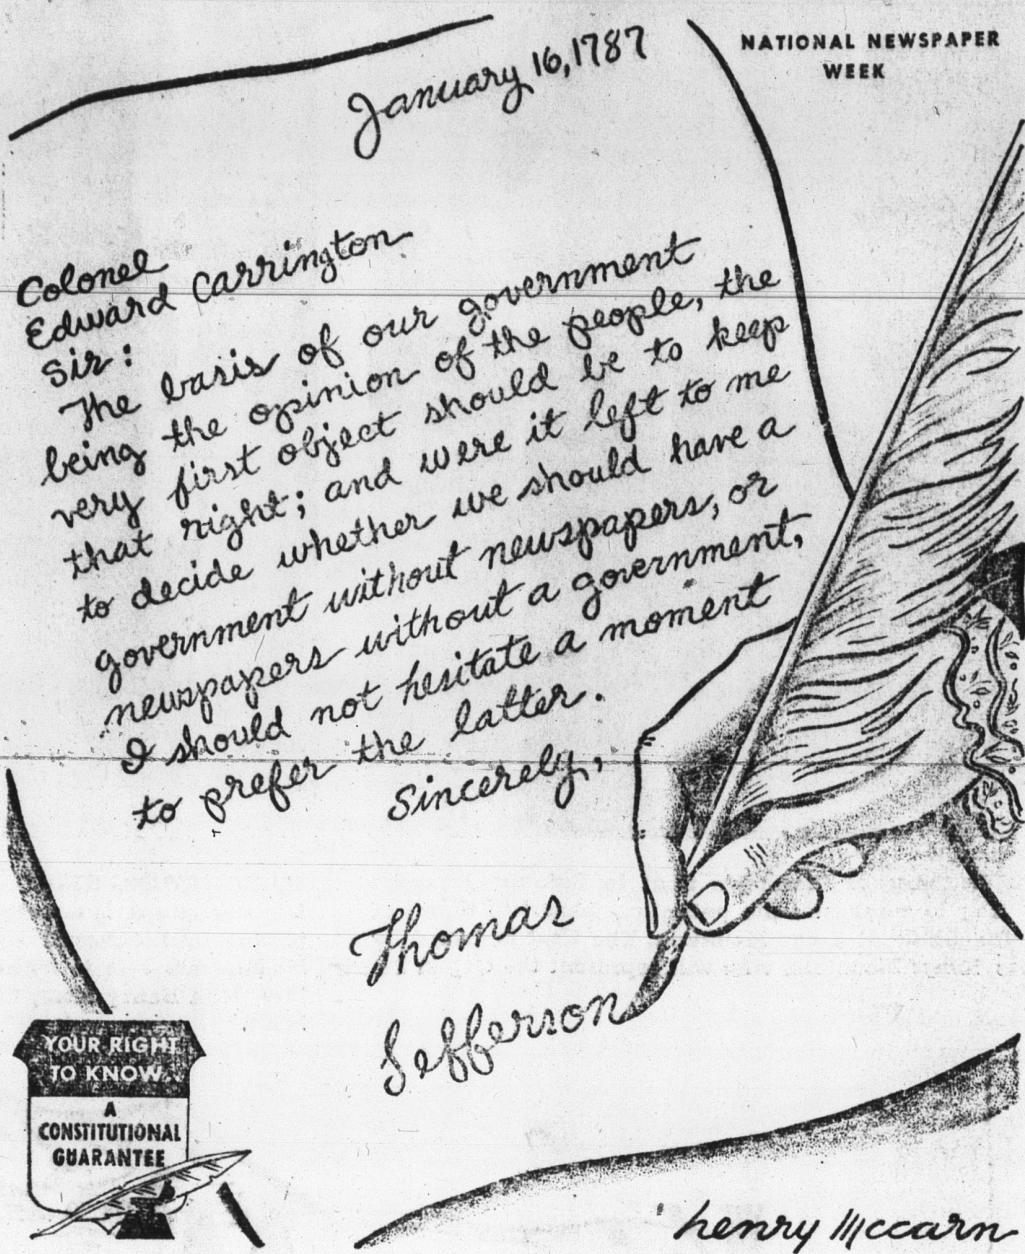 NATIONAL NEWSPAPER
WEEK
January 16, 1787
Colonel
Edward Carrington
Sir:
The basis of our government
being the opinion of the people, the
very first object should be to keep
that right; and were it left to me
to decide whether we should have a
government without newspapers, or
newspapers without a government,
I should not hesitate a moment
to prefer the latter.
Sincerely,
Thomas
Jefferson
YOUR RIGHT
TO KNOW..
A
CONSTITUTIONAL
GUARANTEE
henry mccarn